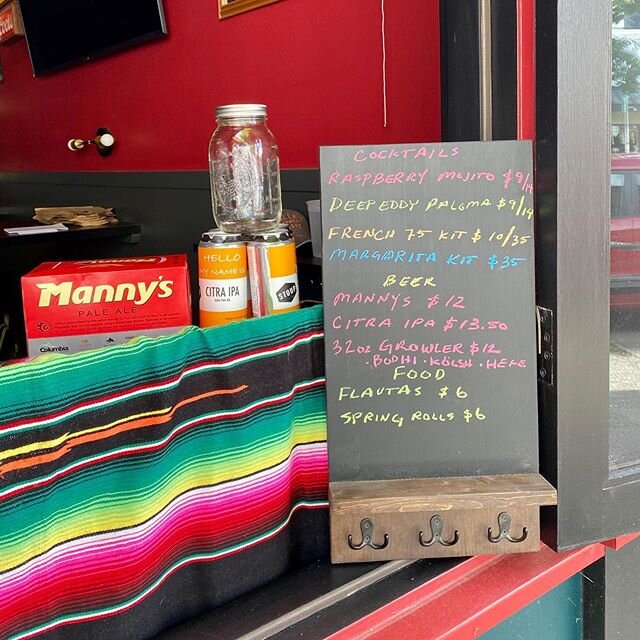 COCKTAILS
RASPBERRY MOJITO $9/14
DEEP EDDY PALOMA $9/14
FRENCH 75 KIT $10/35
MARGARITA KIT $35
BEER
MANNYS $12
CITRA IPA $13.50
32oz GROWLER $12
. BODHI · KOLSH · HEFE
FOOD
FLAUTAS $6
SPRING ROLLS $6
HELLO
MY NAME IS
CITRA IPA
India Pale Ale
STOUP
Manny's
PALE ALE
Columbia